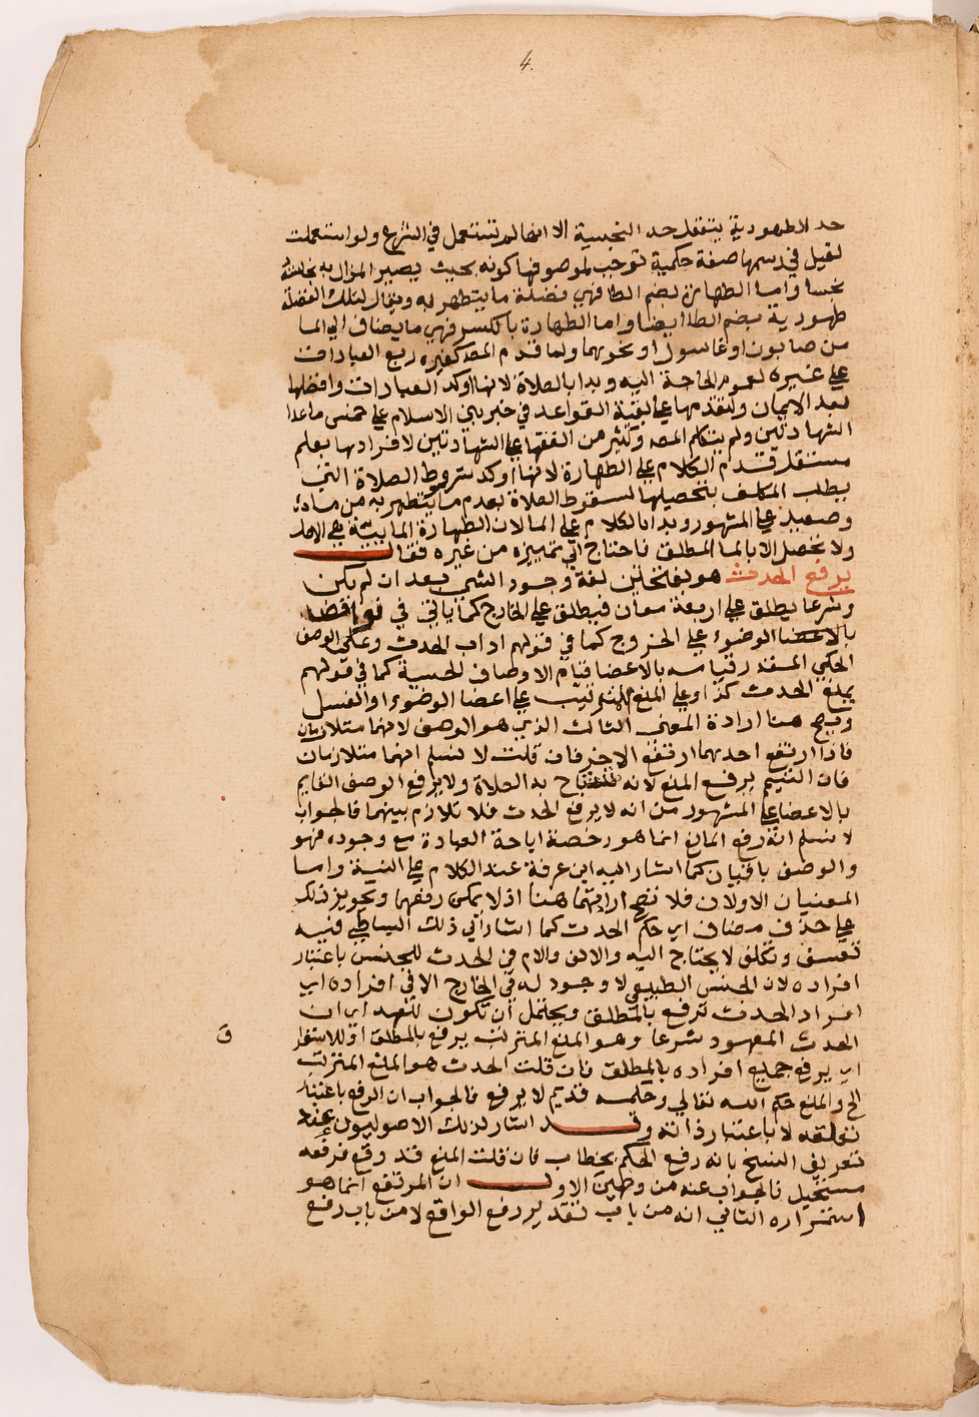 4.
حد للطهورية يتعقل حد النجسية الا انها لم تستعمل في الشرع ولو استعملت
لقيل في رسمها صفة حكمية توجب لموصوفها كونه بحيث يصير المزال به نجاسة
نجسا واما الطهارة بضم الطا فهي فضلة ما يتطهر به ويقال لتلك الفضلة
طهورية بضم الطا ايضا واما الطهارة بالكسر فهي ما يضاف الي الما
من صابون او غاسول او نحوهما ولما قدم المص كغيره ربع العبادات
علي غيره لعموم الحاجة اليه وبدا بالصلاة لانها اوكد العبادات وافضلها
بعد الايمان ولتقدمها علي بقية القواعد في خبر بني الاسلام علي خمس ما عدا
الشهادتين ولم يتكلم المص وكثير من الفقها علي الشهادتين لافرادها بعلم
مستقل قدم الكلام علي الطهارة لانها اوكد شروط الصلاة التي
يطلب المكلف بتحصيلها لسقوط الصلاة بعدم ما يتطهر به من ماء
وصعيد علي المشهور وبدا بالكلام علي الما لان الطهارة المائية هي الاصل
ولا تحصل الا بالما المطلق فاحتاج الي تمييزه من غيره فقال
يرفع الحدث هو بفتحتين لغة وجود الشي بعد ان لم يكن
وشرعا يطلق علي اربعة معان فيطلق علي الخارج كما ياتي في نواقض
الوضوء علي الخروج كما في قولهم اداب الحدث وعلي الوصف
الحكمي المقدر قيامه بالاعضا قيام الاوصاف الحسية كما في قولهم
يمنع الحدث كذا وعلي المنع المترتب علي اعضا الوضوء او الغسل
ويصح هنا ارادة المعني الثالث الذي هو الوصف لانهما متلازمان
فاذا ارتفع احدهما ارتفع الاخر فان قلت لا نسلم انهما متلازمان
فان التيمم يرفع المنع لانه تستباح به الصلاة ولا يرفع الوصف القايم
بالاعضا علي المشهور من انه لا يرفع الحدث فلا تلازم بينهما فالجواب
لا نسلم انه رفع المانع انما هو رخصة اباحة العبادة مع وجوده فهو
والوصف باقيان كما اشار اليه ابن عرفة عند الكلام علي النية واما
المعنيان الاولان فلا تصح ارادتهما هنا اذ لا يمكن رفعهما وتجويز ذلك
علي حذف مضاف اي حكم الحدث كما اشار الي ذلك البساطي فيه
تعسف وتكلف لا يحتاج اليه والالف والام في الحدث للجنس باعتبار
افراده لان الجنس الطبيعي لا وجود له في الخارج الا في افراده اي
افراد الحدث ترفع بالمطلق ويحتمل ان تكون للعهد اي ان
الحدث المعهود شرعا وهو المنع المترتب يرفع بالمطلق او للاستغرا
ق
اي يرفع جميع افراده بالمطلق فان قلت الحدث هو المنع المترتب
الخ والمنع حكم الله تعالي وحكمه قديم لا يرفع فالجواب ان الرفع باعتبار
تعلقه لا باعتبار ذاته وقد اشار لذلك الاصوليون عند
تعريف النسخ بانه رفع الحكم بخطاب فان قلت المنع قد وقع فرفعه
مستحيل فالجواب عنه من وجهين الاول ان المرتفع انما هو
استمراره الثاني انه من باب تقدير رفع الواقع لا من باب رفع